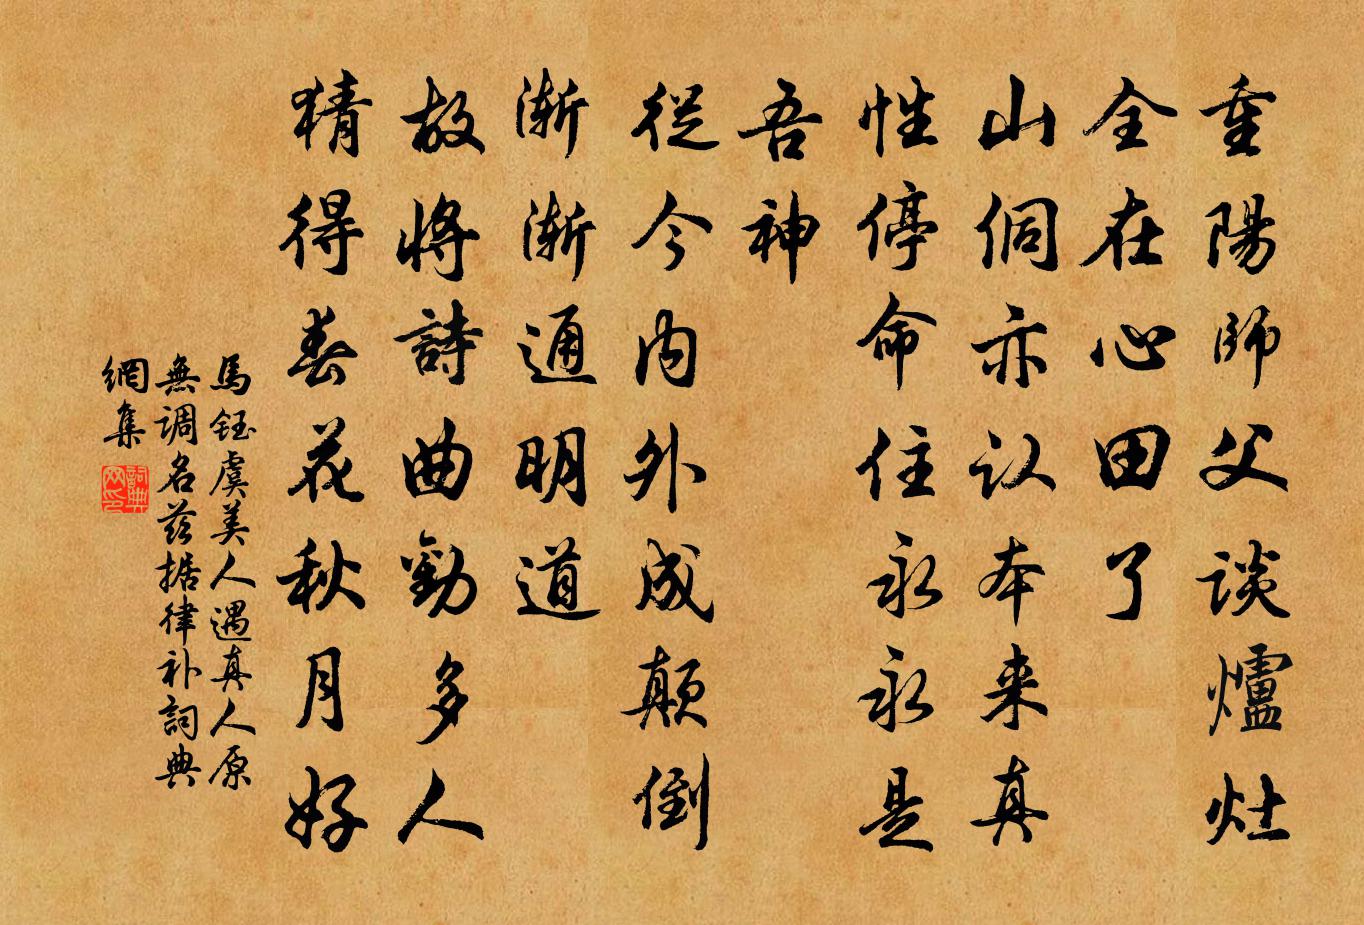 重陽師父談爐灶
全在心田了
山侗亦认本来真
性停命住永永是
吾神
從今内外成颠倒
渐渐通明道
故將詩曲勸多人
猜得春花秋月好
馬鈺虞美人遇真人原
無调名兹据律补詞典
網集
詞典网印